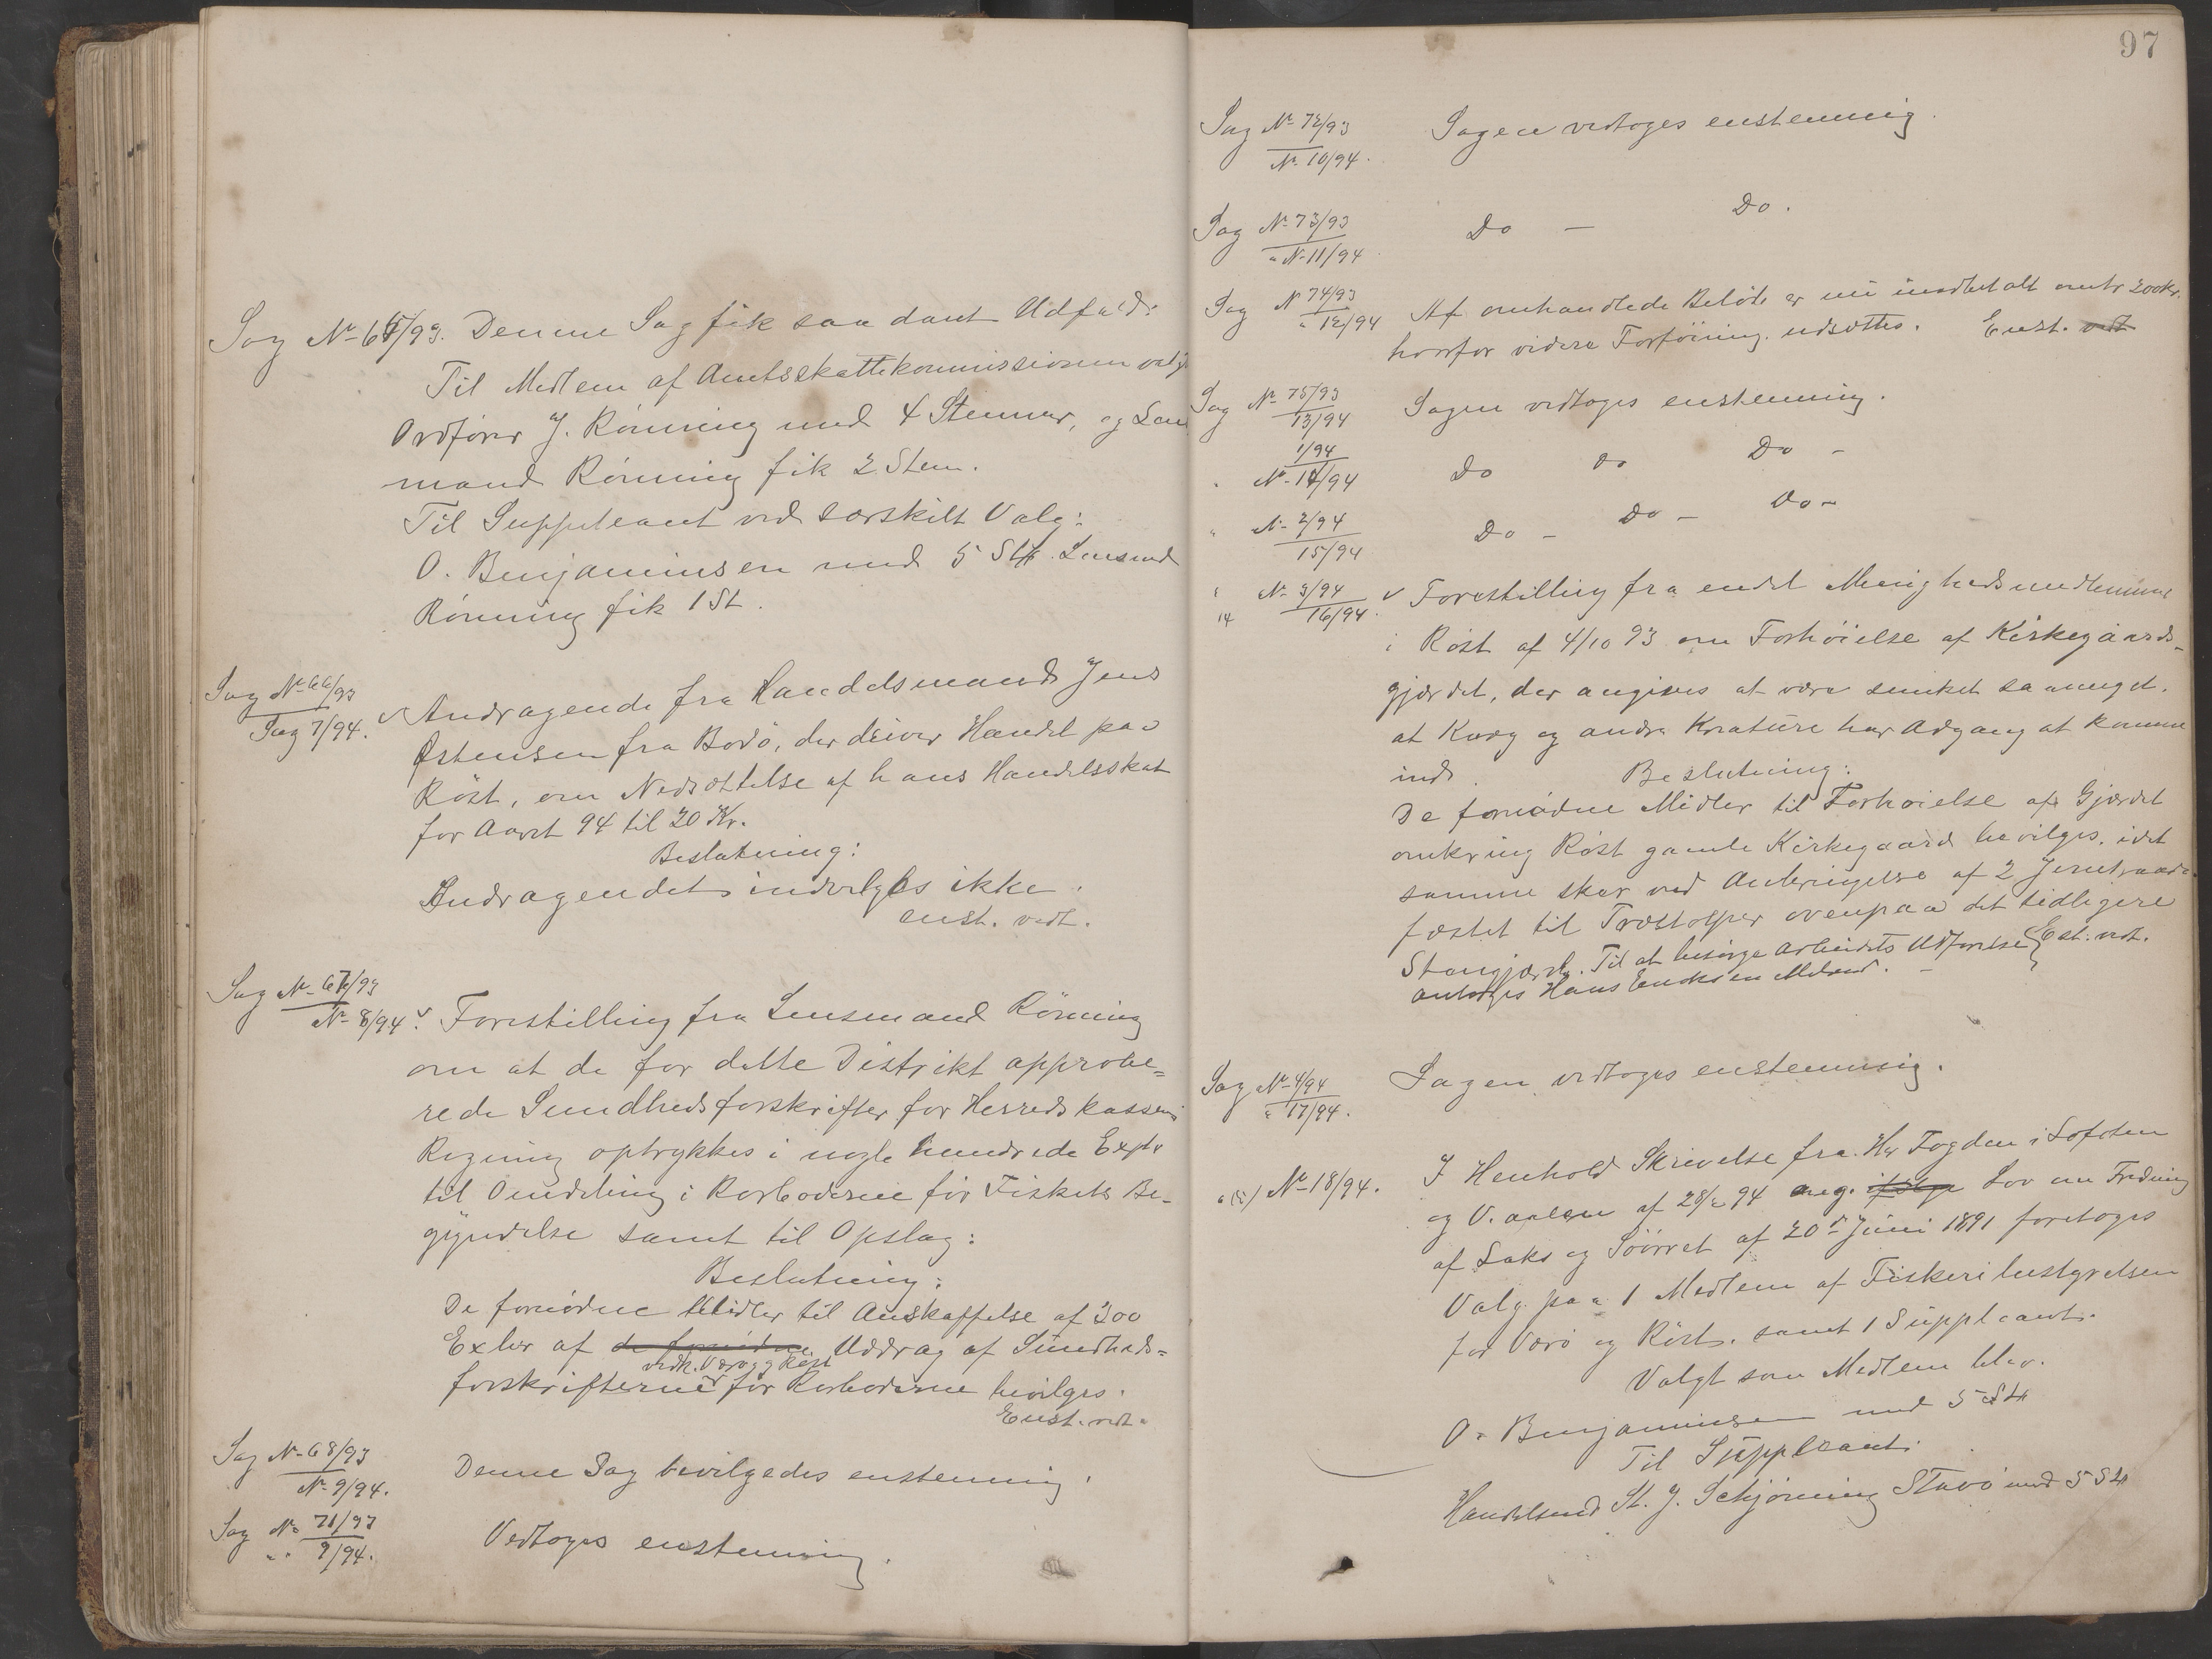 Sag No 65/93. Denne Sag fik saadant Udfald:
Til Medlem af Amtsskattekommissionen valgt
Ordfører J. Rönning med 4 Stemmer, og Lens
mand Rönning fik 2 Stem.
Til Suppleant ved særskilt Valg:
O. Benjaminsen med 5 Str. Lensmd
Rönning fik 1 St.
Sag No 66/93
Sag 7/94. v Andragende fra Handelsmand Jens
Østensen fra Bodö, der driver Handel paa
Röst, om Nedsættelse af hans Handelsskat
for Aaret 94 til 20 Kr.
Beslutning:
Andragendet indvilges ikke.
enst. vedt.
Sag No 67/93
No 8/94 v. Forestilling fra Lensmand Rönning
om at de for dette Distrikt approbe=
rede Sundhedsforskrifter for Herredskassens
Regning optrykkes i nogle hundrede Explr
til Omdeling i Rorboderne för Fiskets Be-
gyndelse samt til Opslag:
Beslutning:
De fornödne Midler til Anskaffelse af 300
Exlr af de fornödne Uddrag af Sundheds=
vedk. Værö og Röst
forskrifterne for Rorboderne bevilges.
Enst. vedt.
Sag No 68/93
No 9/94.
Denne Sag bevilgedes enstemmig.
Sag No 71/93
" " 9/94.
Vedtoges enstemmig.
97
Sag No 72/93
No 10/94.
Sagen vedtoges enstemmig.
Sag No 73/93
" No 11/94
Do - Do.
Sag N 74/93
" 12/94
Af omhandlede Belöb er nu indbetalt omtr 200 Kr.
hvorfor videre Forföining udsættes. Enst. vedt
Sag No 75/93
13/94
Sagen vedtoges enstemmig.
1/94
" No 14/94
Do do Do -
" No 2/94
15/94
Do - Do - Do -
" No 3/94
14 16/94.
v Forestilling fra endel Menighedsmedlemmer
i Röst af 4/10 93 om Forhöielse af Kirkegaards-
gjærdet, der angives at være sunket saameget,
at Kvæg og andre Kreature har Adgang at komme
ind.
Beslutning:
De fornödne Midler til Forhöielse af Gjærdet
omkring Röst gamle Kirkegaard bevilges, idet
samme sker ved Anbringelse af 2 Jerntraade
fæstet til Træstolper ovenpaa det tidligere
Stengjærde. Til at besörge Arbeidets Udförelse Est. vedt.
antages Hans
Sag No 4/94
" 17/94.
Sagen vedtoges enstemmig.
No 18/94.
I Henhold Skrivelse fra Hr Fogden i Lofoten
og V.aalen af 28/2 94 ang. Lov om Fredning
af Laks og Söörret af 20de Juni 1891 foretoges
Valg paa 1 Medlem af Fiskeribestyrelsen
for Værö og Röst. samt 1 Suppleant.
Valgt som Medlem blev.
O. Benjaminsen med 5 Str
Til Suppleant:
Handelsmd St. J. Schjönning Stavö med 5 Str